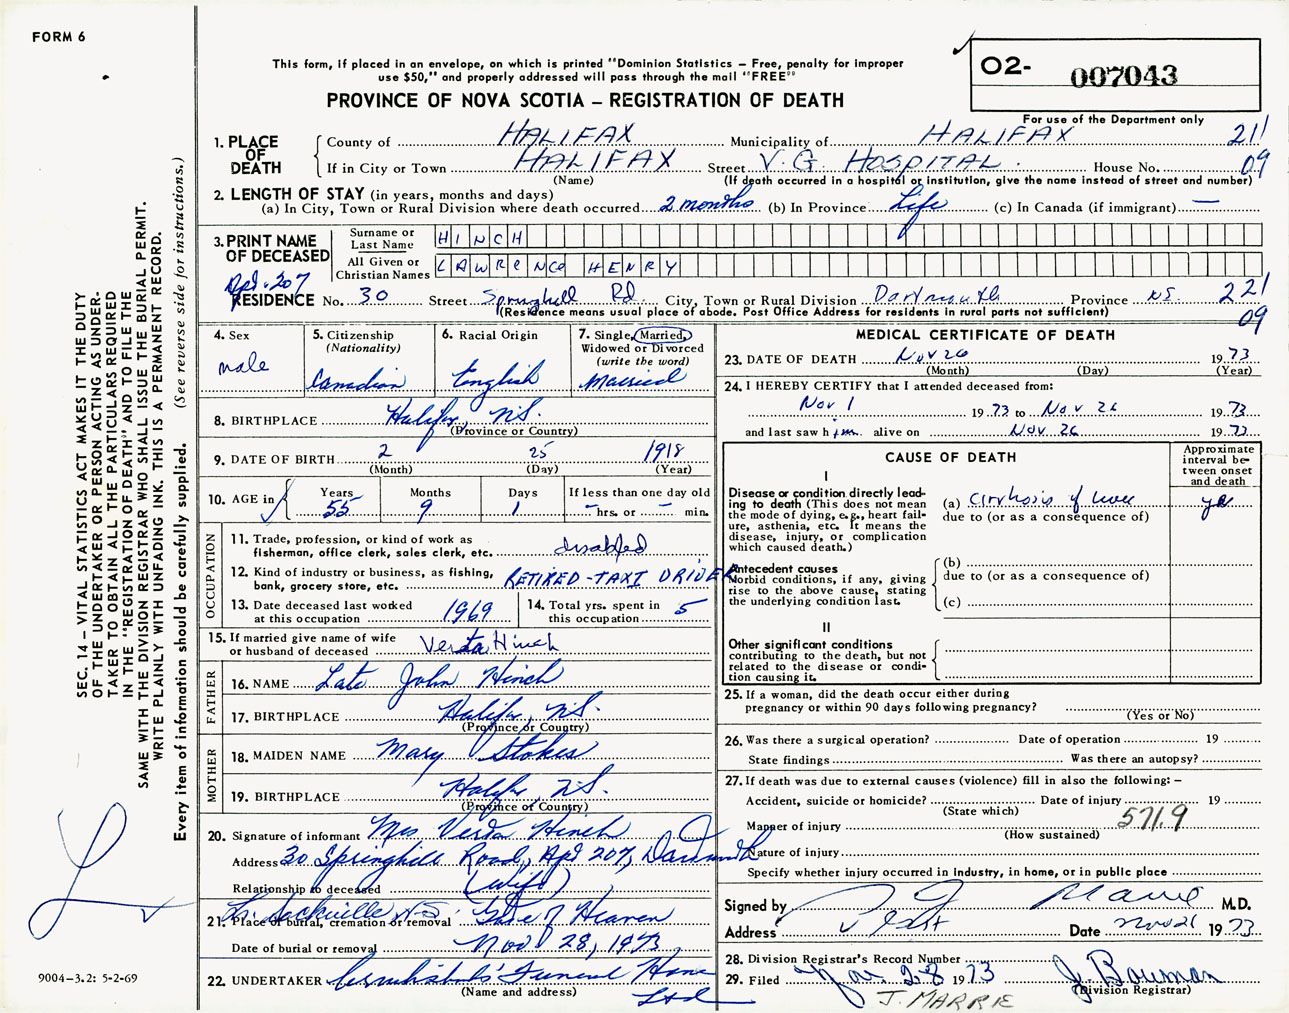 FORM 6
This form, if placed in an envelope, on which is printed "Dominion Statistics – Free, penalty for improper
use $50," and properly addressed will pass through the mail "FREE"
PROVINCE OF NOVA SCOTIA – REGISTRATION OF DEATH
O2- 007043
For use of the Department only
1. PLACE OF DEATH
County of HALIFAX Municipality of HALIFAX 211
If in City or Town HALIFAX Street V.G. HOSPITAL House No. 09
(Name) (If death occurred in a hospital or institution, give the name instead of street and number)
2. LENGTH OF STAY (in years, months and days)
(a) In City, Town or Rural Division where death occurred 2 months (b) In Province Life (c) In Canada (if immigrant) —
3. PRINT NAME OF DECEASED
Surname or Last Name HINCH
All Given or Christian Names LAWRENCE HENRY
Apt. 207
RESIDENCE No. 30 Street Springhill Rd. City, Town or Rural Division Dartmouth Province NS. 221
(Residence means usual place of abode. Post Office Address for residents in rural parts not sufficient) 09
4. Sex
male
5. Citizenship
(Nationality)
Canadian
6. Racial Origin
English
7. Single, Married,
Widowed or Divorced
(write the word)
Married
8. BIRTHPLACE Halifax, N.S.
(Province or Country)
9. DATE OF BIRTH 2 25 1918
(Month) (Day) (Year)
10. AGE in
Years Months Days If less than one day old
55 9 1 – hrs. or – min.
OCCUPATION
11. Trade, profession, or kind of work as
fisherman, office clerk, sales clerk, etc. disabled
12. Kind of industry or business, as fishing,
bank, grocery store, etc. RETIRED-TAXI DRIVER
13. Date deceased last worked
at this occupation 1969
14. Total yrs. spent in
this occupation 5
15. If married give name of wife
or husband of deceased Verda Hinch
FATHER
16. NAME Late John Hinch
17. BIRTHPLACE Halifax, N.S.
(Province or Country)
MOTHER
18. MAIDEN NAME Mary Stokes
19. BIRTHPLACE Halifax, N.S.
(Province or Country)
20. Signature of informant Mrs Verda Hinch
Address 30 Springhill Road, Apt 207, Dartmouth
Relationship to deceased (wife)
L. Sackville N.S. Gate of Heaven
21. Place of burial, cremation or removal
Date of burial or removal Nov 28, 1973
22. UNDERTAKER Funeral Home
(Name and address) Ltd
MEDICAL CERTIFICATE OF DEATH
23. DATE OF DEATH Nov 26 19 73
(Month) (Day) (Year)
24. I HEREBY CERTIFY that I attended deceased from:
Nov 1 19 73 to Nov 26 19 73
and last saw him alive on Nov. 26 19 73
CAUSE OF DEATH
Approximate
interval be-
tween onset
and death
I
Disease or condition directly lead-
ing to death (This does not
mean the mode of dying, e.g., heart fail-
ure, asthenia, etc. It means the
disease, injury, or complication
which caused death.)
(a) Cirrhosis of liver
due to (or as a consequence of)
Antecedent causes
Morbid conditions, if any, giving
rise to the above cause, stating
the underlying condition last.
(b)
due to (or as a consequence of)
(c)
II
Other significant conditions
contributing to the death, but not
related to the disease or condi-
tion causing it.
25. If a woman, did the death occur either during
pregnancy or within 90 days following pregnancy?
(Yes or No)
26. Was there a surgical operation? Date of operation 19
State findings Was there an autopsy?
27. If death was due to external causes (violence) fill in also the following: –
Accident, suicide or homicide? Date of injury 19
(State which)
Manner of injury 571.9
(How sustained)
Nature of injury
Specify whether injury occurred in industry, in home, or in public place
Signed by M.D.
Address Date Nov 26 19 73
28. Division Registrar's Record Number
29. Filed Nov. 28 1973 J. Bowman
(Division Registrar)
J. MARRIE
SEC. 14 – VITAL STATISTICS ACT MAKES IT THE DUTY
OF THE UNDERTAKER OR PERSON ACTING AS UNDER-
TAKER TO OBTAIN ALL THE PARTICULARS REQUIRED
IN THE "REGISTRATION OF DEATH" AND TO FILE THE
SAME WITH THE DIVISION REGISTRAR WHO SHALL ISSUE THE BURIAL PERMIT.
WRITE PLAINLY WITH UNFADING INK. THIS IS A PERMANENT RECORD.
Every item of information should be carefully supplied. (See reverse side for instructions.)
9004-3.2: 5-2-69